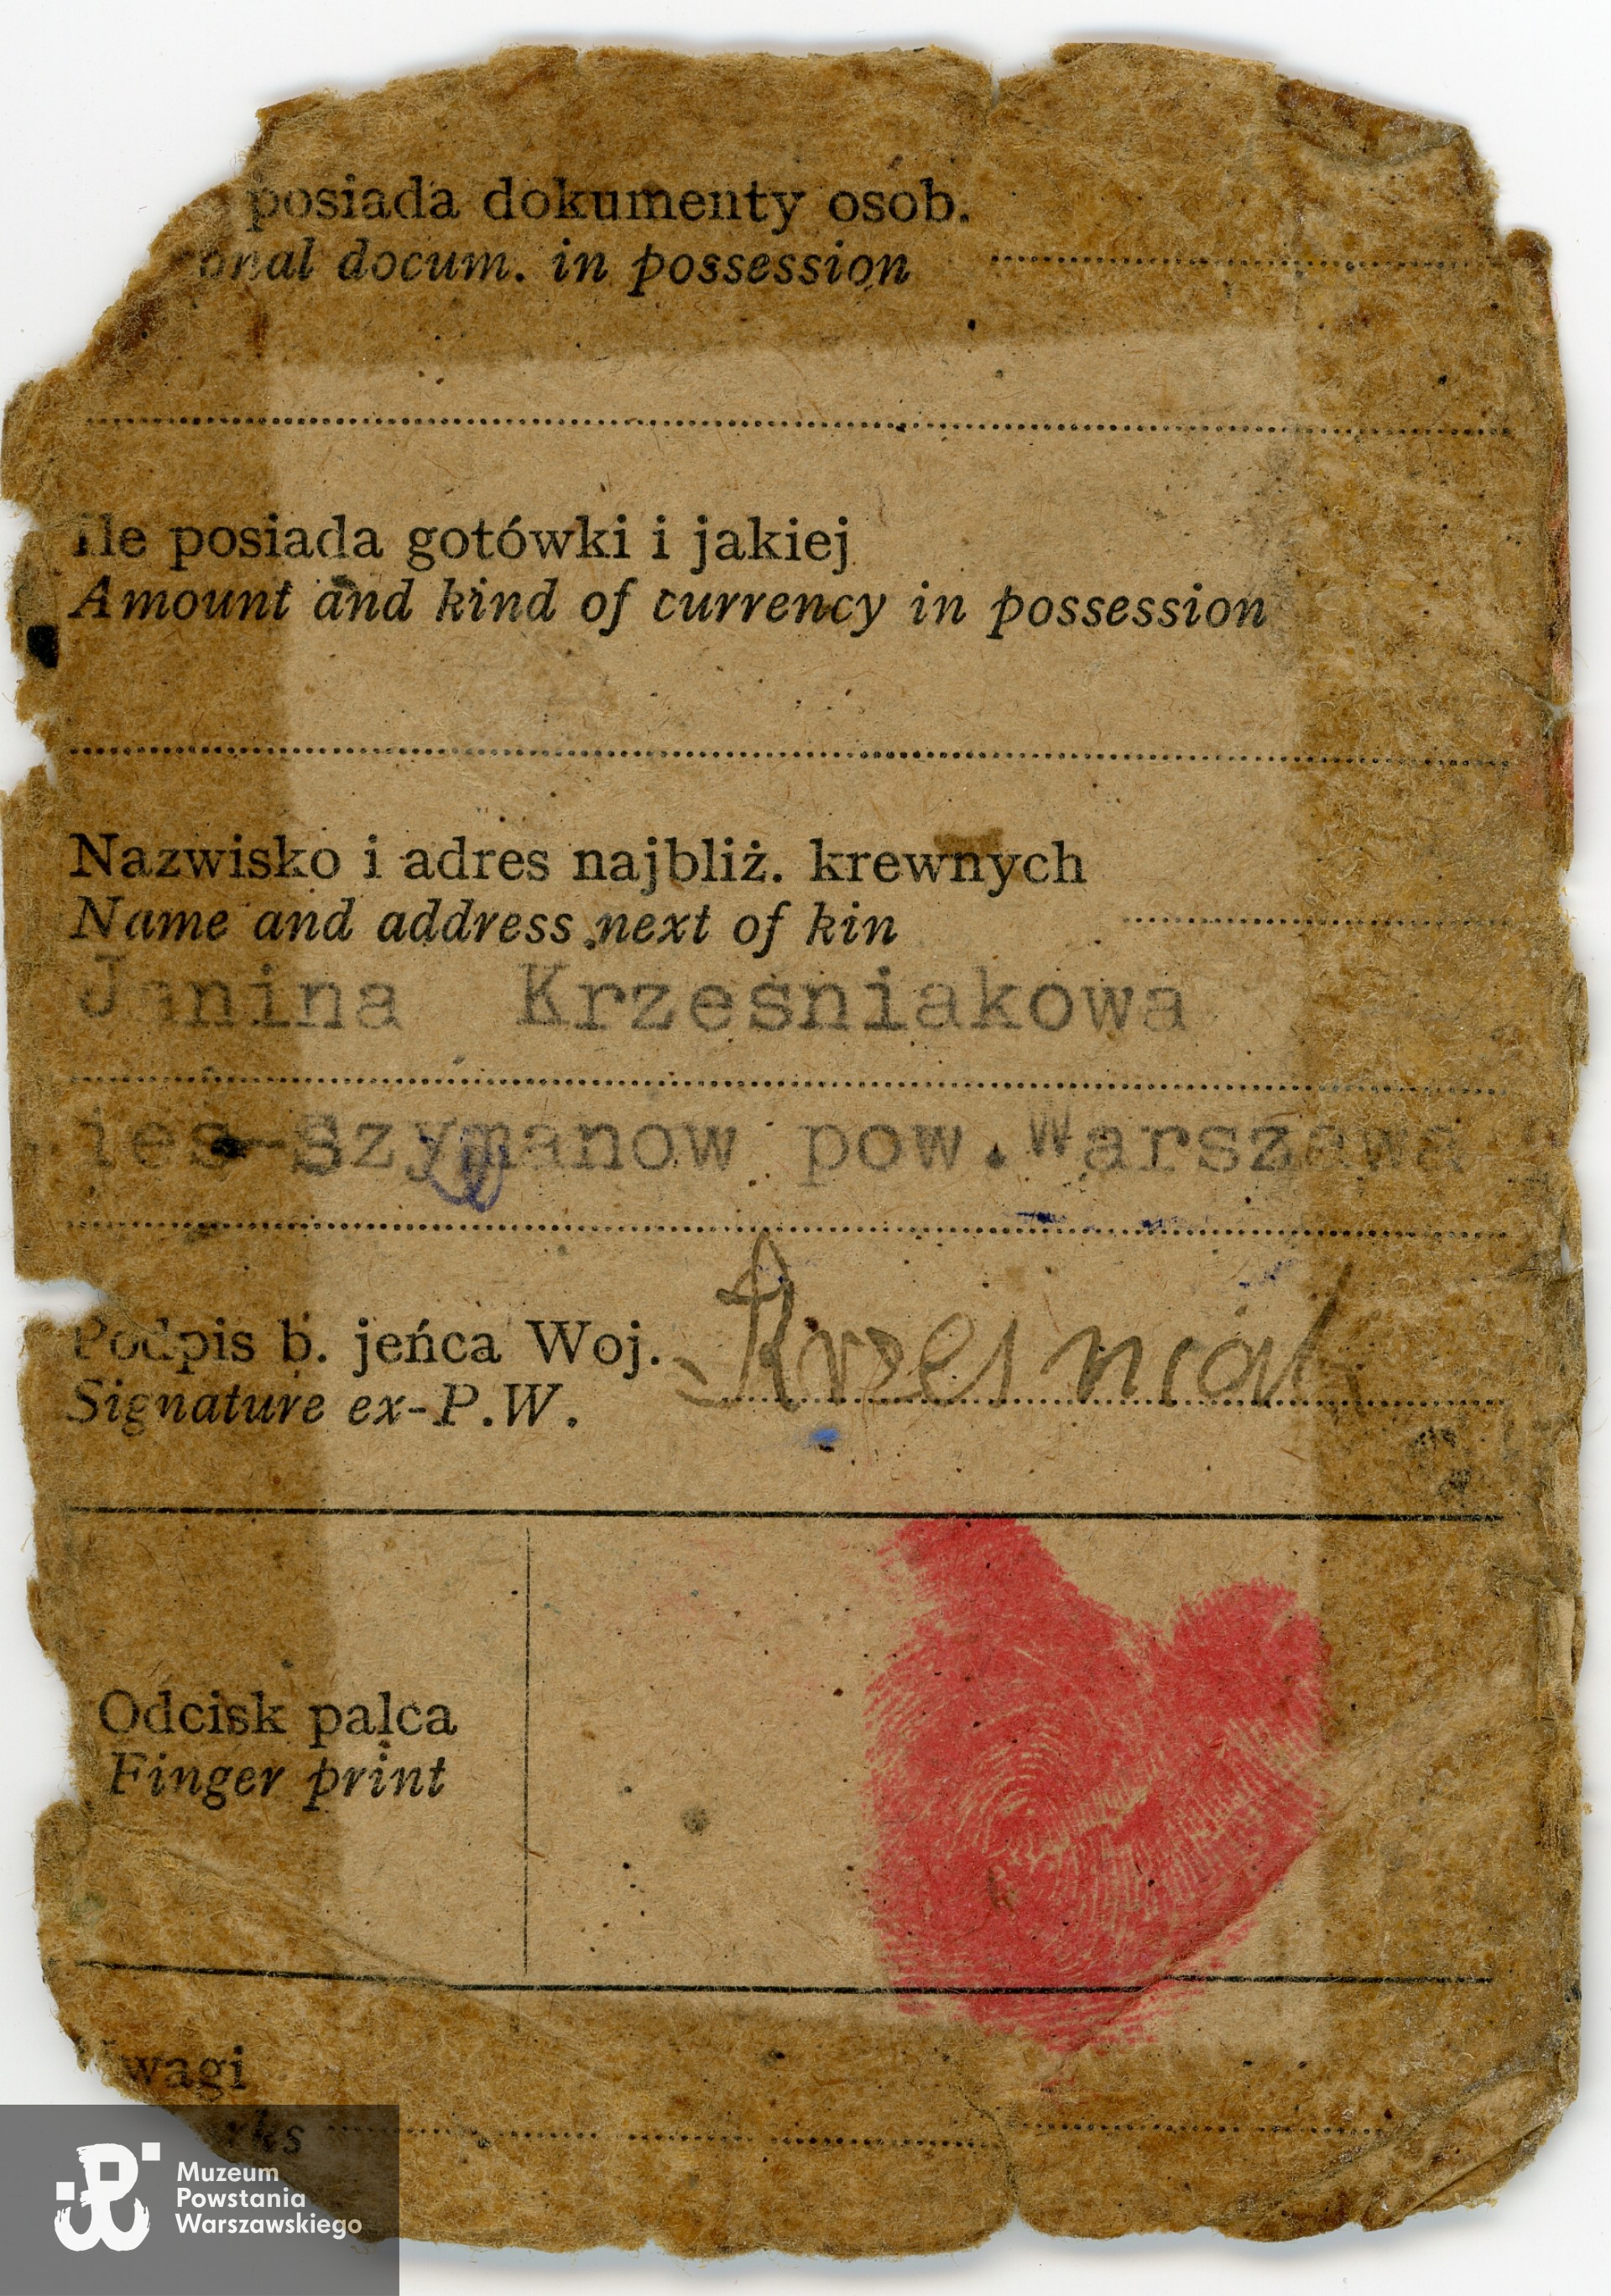 posiada dokumenty osob.
onal docum. in possession
Ile posiada gotówki i jakiej
Amount and kind of currency in possession
Nazwisko i adres najbliż. krewnych
Name and address next of kin
Janina Krześniakowa
Szymanow pow. Warszawa
Podpis b. jeńca Woj. Krześniak
Signature ex-P.W.
Odcisk palca
Finger print
Uwagi
rks
Muzeum
Powstania
Warszawskiego